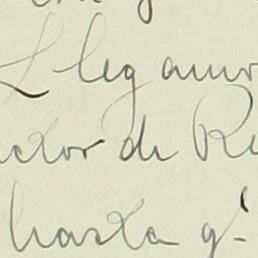 Llegamo
ector de Re
hasta q.